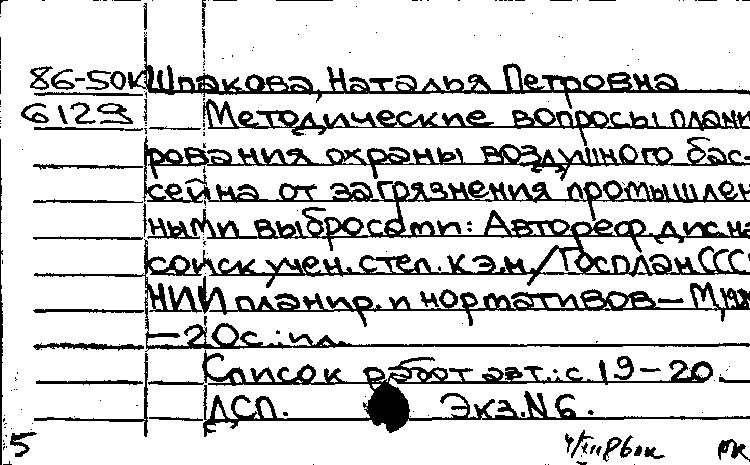 86-50к Шпакова, Наталья Петровна
6129 Методические вопросы плани
рования охраны воздушного бас-
сейна от загрязнения промышлен
ными выбросами: Автореф. дис. на
соиск учен. степ. к.э.н. / Госплан СССР
НИИ планир. и нормативов — М, 19
— 20с.: ил.
Список работ авт.: с. 19-20.
ДСП. Экз. N 6.
5